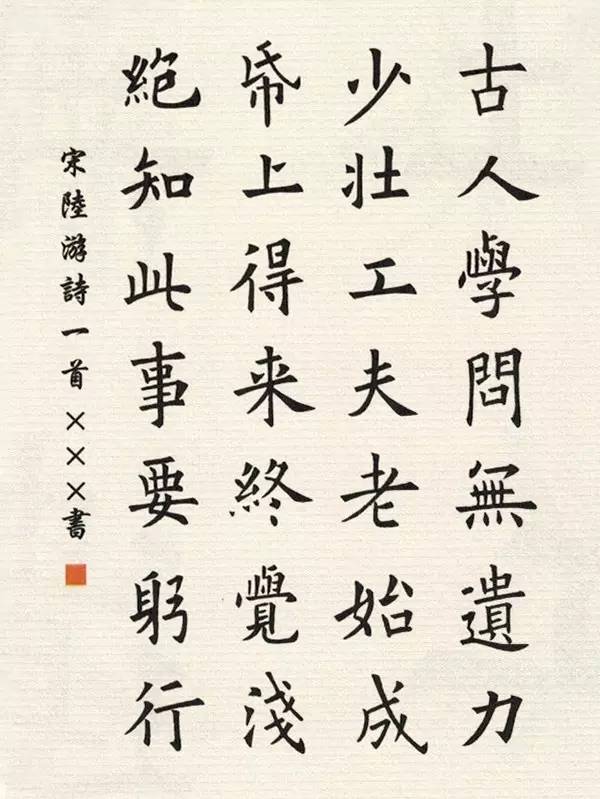 古人學問無遺力
少壯工夫老始成
帋上得来終覺淺
絕知此事要躬行
宋陸游詩一首×××書